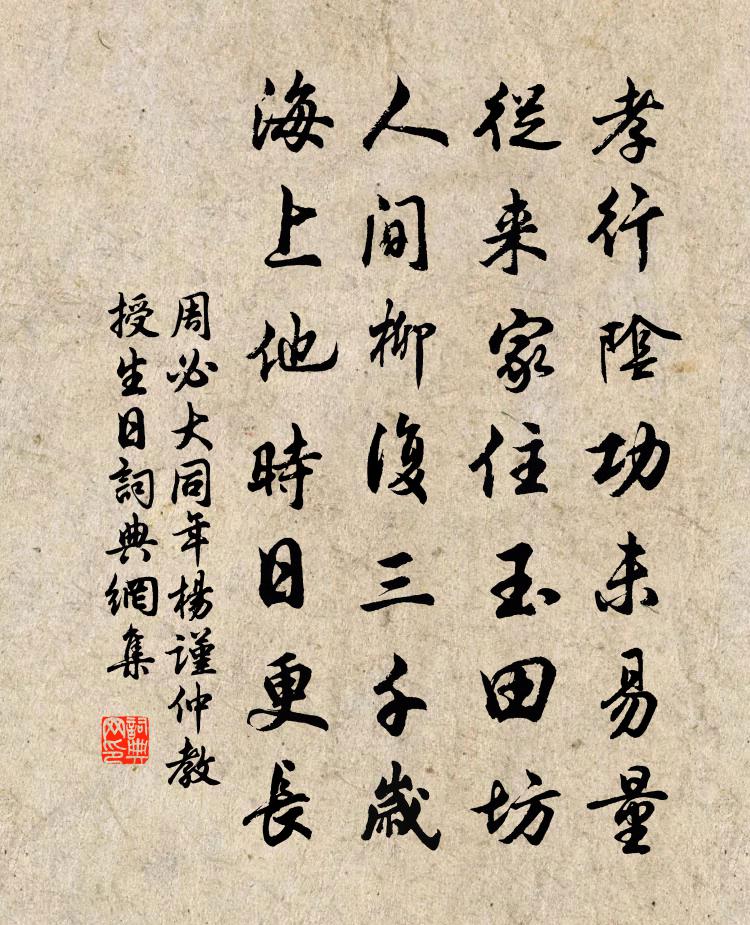 孝行陰功未易量
從来家住玉田坊
人間柳復三千歲
海上他時日更長
周必大同年楊謹仲教
授生日詞典網集
詞典网印